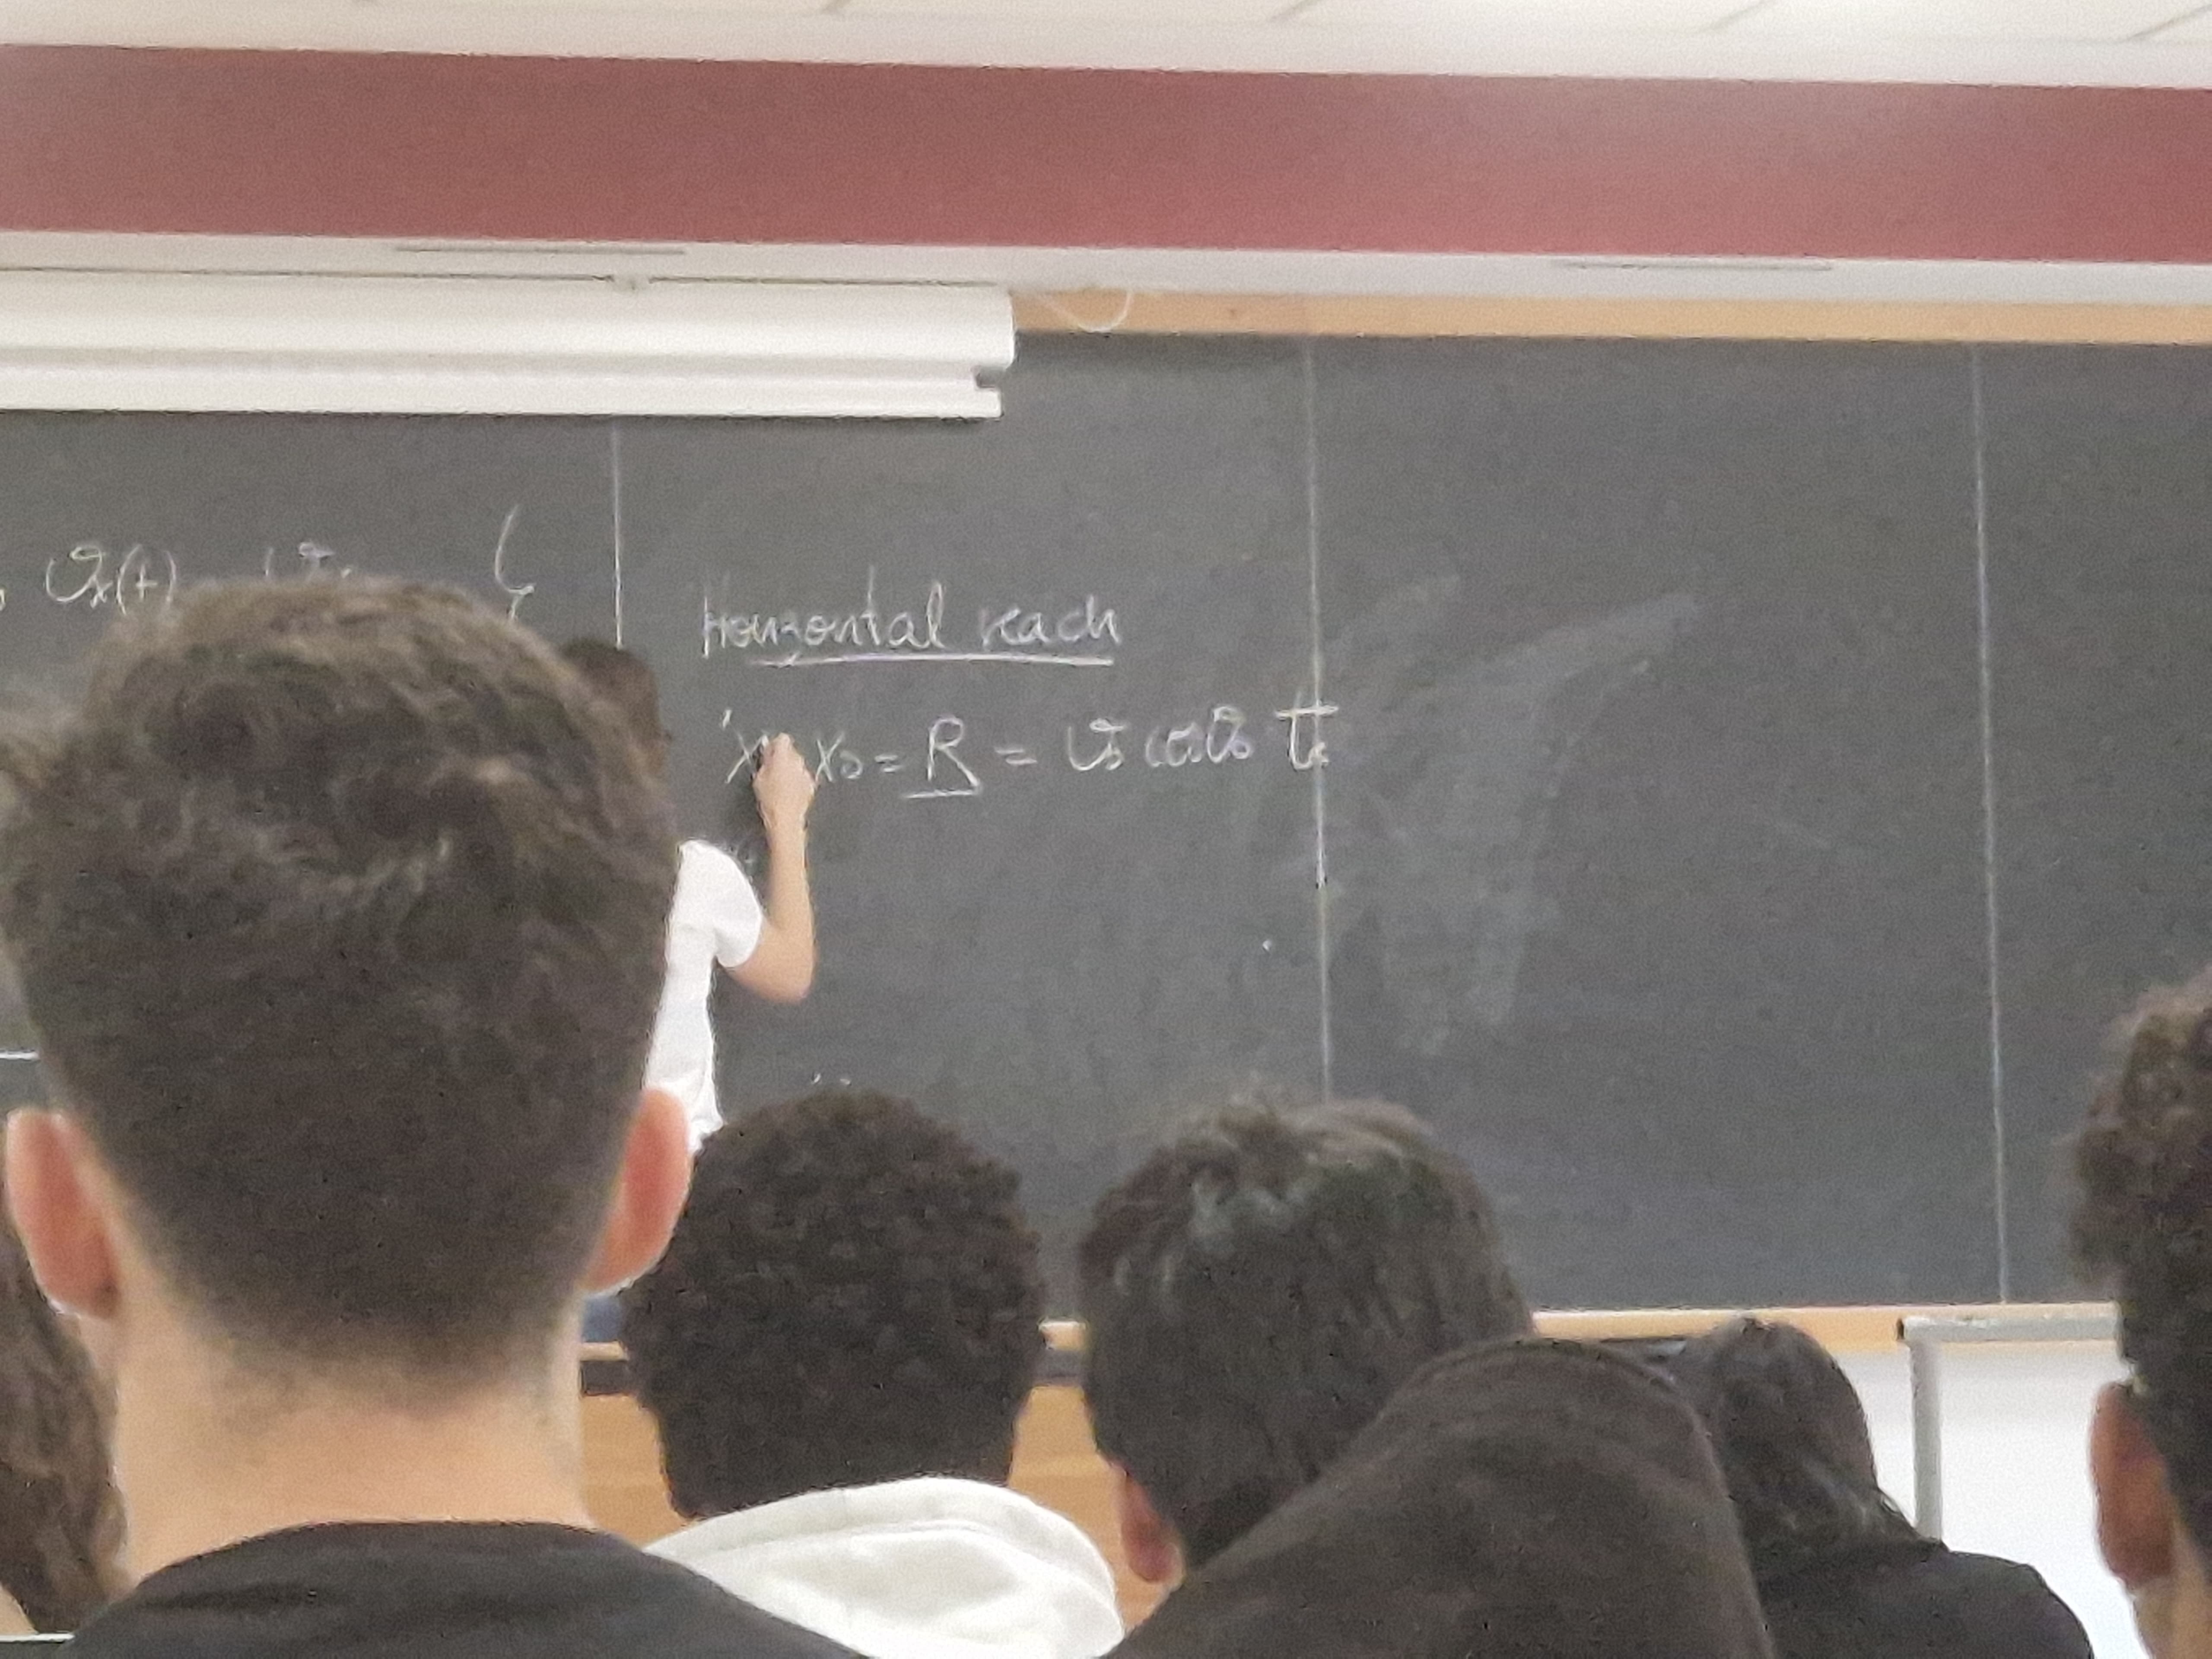 υx(t)
Horizontal reach
x - x₀ = R = υ₀ cosθ₀ t